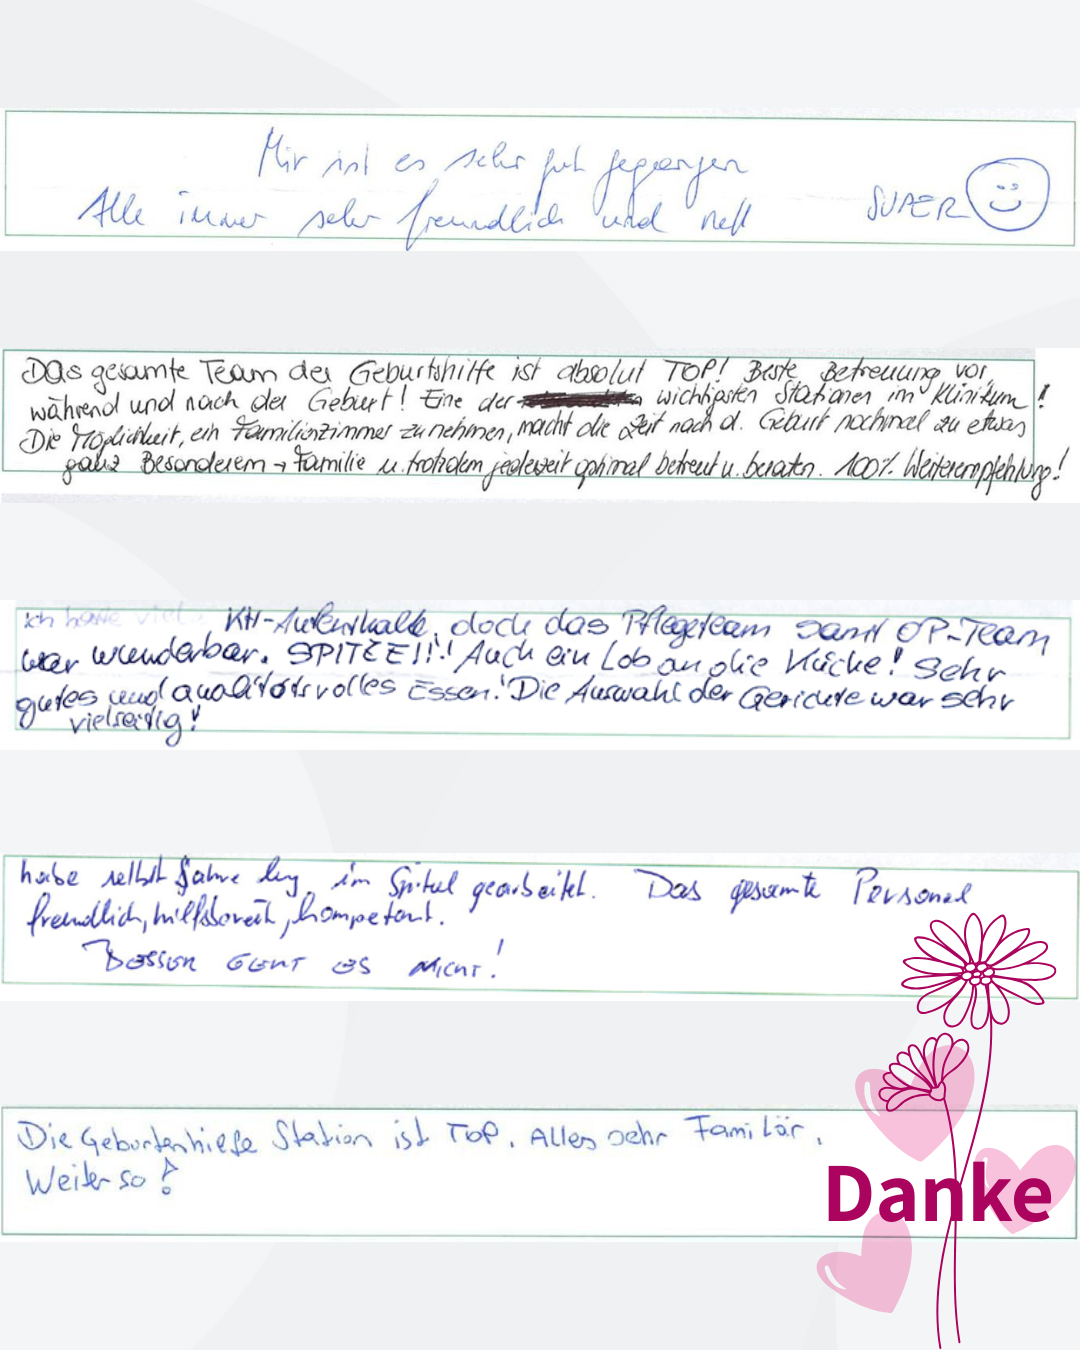 Mir ist es sehr gut gegangen
Alle immer sehr freundlich und nett SUPER
Das gesamte Team der Geburtshilfe ist absolut TOP! Beste Betreuung vor,
während und nach der Geburt! Eine der wichtigsten Stationen im Klinikum!
Die Möglichkeit, ein Familienzimmer zu nehmen, macht die Zeit nach d. Geburt nochmal zu etwas
ganz Besonderem → Familie u. trotzdem jederzeit optimal betreut u. beraten. 100% Weiterempfehlung!
Ich hatte viele KH-Aufenthalte, doch das Pflegeteam samt OP-Team
war wunderbar. SPITZE!!! Auch ein Lob an die Küche! Sehr
gutes und qualitätsvolles Essen! Die Auswahl der Gerichte war sehr
vielseitig!
habe selbst Jahre lang im Spital gearbeitet. Das gesamte Personal
freundlich, hilfsbereit, kompetent.
BESSER GEHT ES NICHT!
Die Geburtenhiefe Station ist TOP. Alles sehr Familär.
Weiter so!
Danke